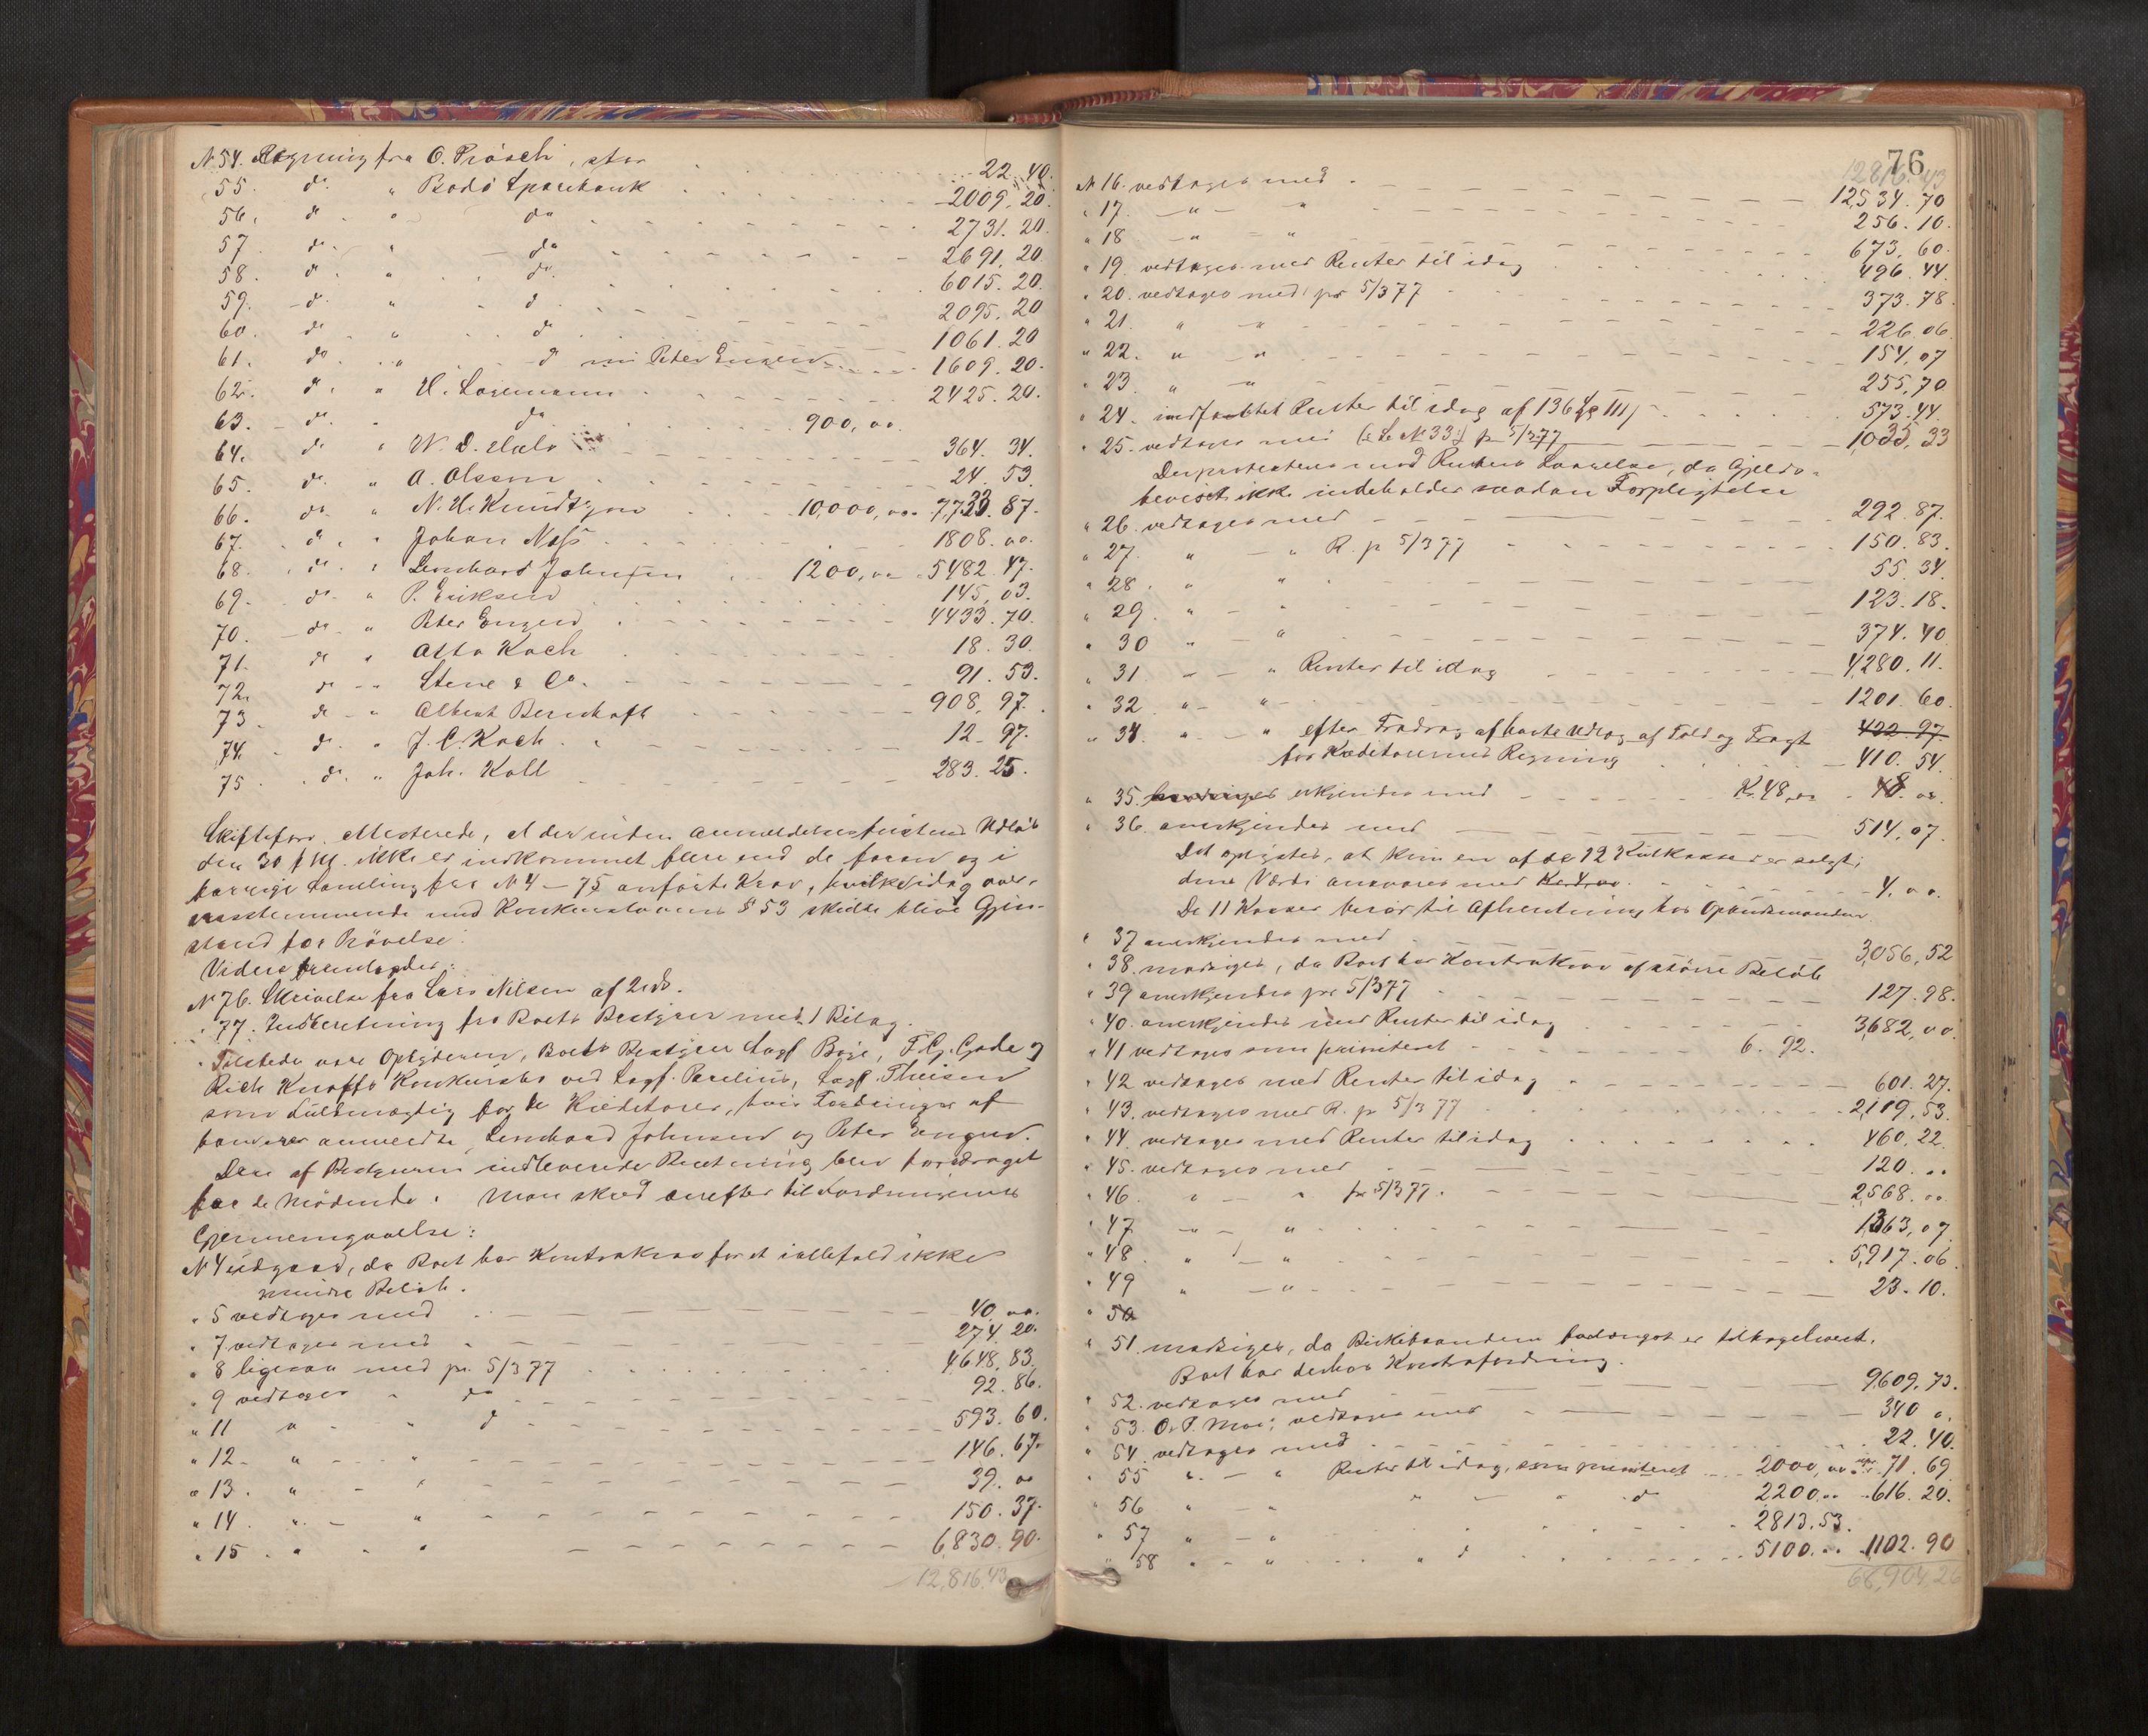 N 54. Regning fra O. Prösch, stor 22.40.
55. do. " Bodö Sparebank 2009.20.
56. d. " do 2731.20
57 d. " do 2691.20
58. d. " do. 6015.20.
59. d. " d 2095.20
60. d. " d 1061.20
61. do. " d Peter Engen 1609.20.
62. d. " H. 2425.20.
63. do. " do 900,oo.
64. do " W. D. 364.34.
65. do. " A. Olsson 24.53.
66. do. " N. H. Knudtzon 10,000,oo. 7,733.87.
67. d. " Johan 1808.oo.
68. do. " Lenhard Johnsen 1200,oo 5482.47.
69. do. " P. Eriksen 145,03.
70. do. " Peter Engen 4433.70.
71. d " Otto Koch 18.30.
72. d " Stene & Co. 91.53.
73. d " Albert 908,97.
74. d. " J. C. Koch. 12.97.
75. d. " Joh. Koll 283.25.
Skifteforv. attesterede, at der inden Anmeldelsesfristens Udløb
den 30 f. M. ikke er indkommet flere end de foran og i
forrige Samling fra N 4 – 75 anførte Krav, hvilke idag over-
ensstemmende med Konkurslovens § 53 skulde blive Gjen-
stand for Prövelse.
Videre fremlagdes:
N 76. Skrivelse fra Lars Nilsen af 2 ds.
" 77. Indberetning fra Boets Bestyrer med 1 Bilag.
Tilstede vare Opbyderen, Boets Bestyrer Sagf. Boje, F. G. Gade og
Rich Knoffs Konkursbo ved Sagf. Parelius, Sagf. Theisen
som Fuldmægtig for de Kreditorer, hvis Fordringer af
ham ere anmeldte, Lenhard Johnsen og Peter Engen.
Den af Bestyreren indleverede Beretning blev foredraget
for de Mödende. Man skred derefter til Fordringernes
Gjennemgaaelse:
N 4 udgaar, da Boet har Kontrakrav for et iallefald ikke
mindre Belöb.
" 5 vedtages med 40.oo.
" 7 vedtages med 274.20.
" 8 ligesaa med pr. 5/3 77 4648.83.
" 9 vedtages " do 92.86.
" 11 " " d 593.60.
" 12 " " 146.67.
" 13. " " 39.oo
" 14. " " 150.37.
" 15. " " 6,830.90.
12,816.43
76
12816.43
N 16. vedtages med 12,534.70
" 17. " " 256.10.
" 18 " " 673.60.
" 19. vedtages med Renter til idag 496.44.
" 20. vedtages med pr 5/3 77 373.78.
" 21. " " 226.06
" 22. " " 154.07
" 23. " " 255,70
" 24. Renter til idag af 136 573.44.
" 25. vedtages med N 33 pr 5/3 77 1,035.33
Der protesteres mod Renters, da Gjelds-
beviset ikke indeholder saadan Forpligtelse
" 26. vedtages med 292.87.
" 27. " " R. pr 5/3 77 150.83.
" 28. " " 55.34.
" 29. " " 123.18.
" 30 " " 374.40
" 31. " " Renter til idag 4,280.11.
" 32 " " 1201.60.
" 34. " " efter Fradrag af Udlæg af Told og Fragt 422.97.
for Kreditorernes Regning 410.54.
" 35. erkjendes med Kr. 48,oo 48.oo.
" 36. anerkjendes med 514,07.
Det oplystes, at kun en af de 12 Kasser er solgt;
dens Værdi ansvares med Kr. 4,oo. 4.oo.
De 11 Kasser beror til Afhentning hos Opbudsmanden.
" 37 anerkjendes med 3,056,52
" 38. modsiges, da Boet har Kontrakrav af större Belöb
" 39 anerkjendes pr 5/3 77 127.98.
" 40. anerkjendes med Renter til idag 3,682,oo.
" 41 vedtages som prioriteret 6.92.
" 42 vedtages med Renter til idag 601.27.
" 43. vedtages med R. pr 5/3 77 2,119.53.
" 44. vedtages med Renter til idag 460.22.
" 45. vedtages med 120.oo
" 46. " " pr 5/3 77. 2,568.oo
" 47 " " 1,363,07
" 48. " " 5,917.06.
" 49 " " 23.10.
" 50
" 51. modsiges, da er tilbageleveret.
Boet har derhos Kontrafordring.
" 52. vedtages med 9,609.73.
" 53. O. P. Moe; vedtages med 340 o.
" 54. vedtages med 22.40.
" 55 " " Renter til idag, som prioriteret 2000,oo 71.69
" 56 " " " d 2200,oo 616.20.
" 57 " " 2813.53.
" 58 " " " d 5100.oo 1102.90
68,904.26